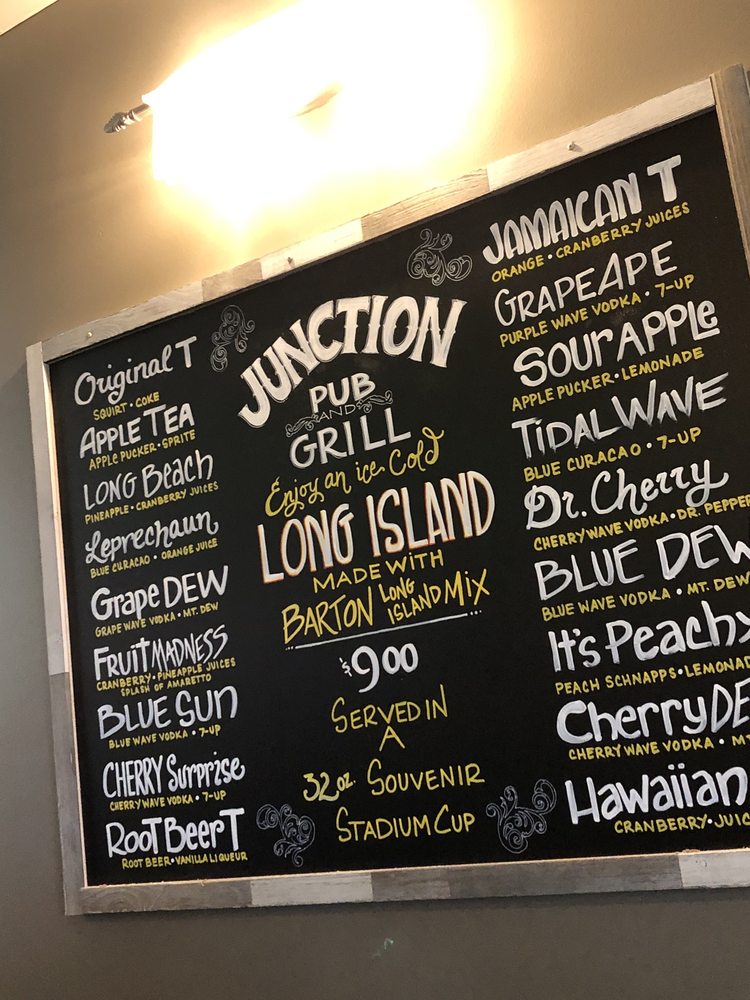 Original T
SQUIRT • COKE
APPLE TEA
APPLE PUCKER • SPRITE
LONG Beach
PINEAPPLE • CRANBERRY JUICES
Leprechaun
BLUE CURACAO • ORANGE JUICE
Grape DEW
GRAPE WAVE VODKA • MT. DEW
FRUIT MADNESS
CRANBERRY • PINEAPPLE JUICES
SPLASH OF AMARETTO
BLUE SUN
BLUE WAVE VODKA • 7-UP
CHERRY Surprise
CHERRY WAVE VODKA • 7-UP
ROOT BEER T
ROOT BEER • VANILLA LIQUEUR
JUNCTION
PUB
AND
GRILL
Enjoy an ice Cold
LONG ISLAND
MADE WITH
BARTON LONG ISLAND MIX
$9.00
SERVED IN
A
32 oz. SOUVENIR
STADIUM CUP
JAMAICAN T
ORANGE • CRANBERRY JUICES
GRAPE APE
PURPLE WAVE VODKA • 7-UP
SOUR APPLE
APPLE PUCKER • LEMONADE
TIDAL WAVE
BLUE CURACAO • 7-UP
Dr. Cherry
CHERRY WAVE VODKA • DR. PEPPER
BLUE DEW
BLUE WAVE VODKA • MT. DEW
It's Peachy
PEACH SCHNAPPS • LEMONAD
Cherry DE
CHERRY WAVE VODKA • MT
Hawaiian
CRANBERRY • JUIC